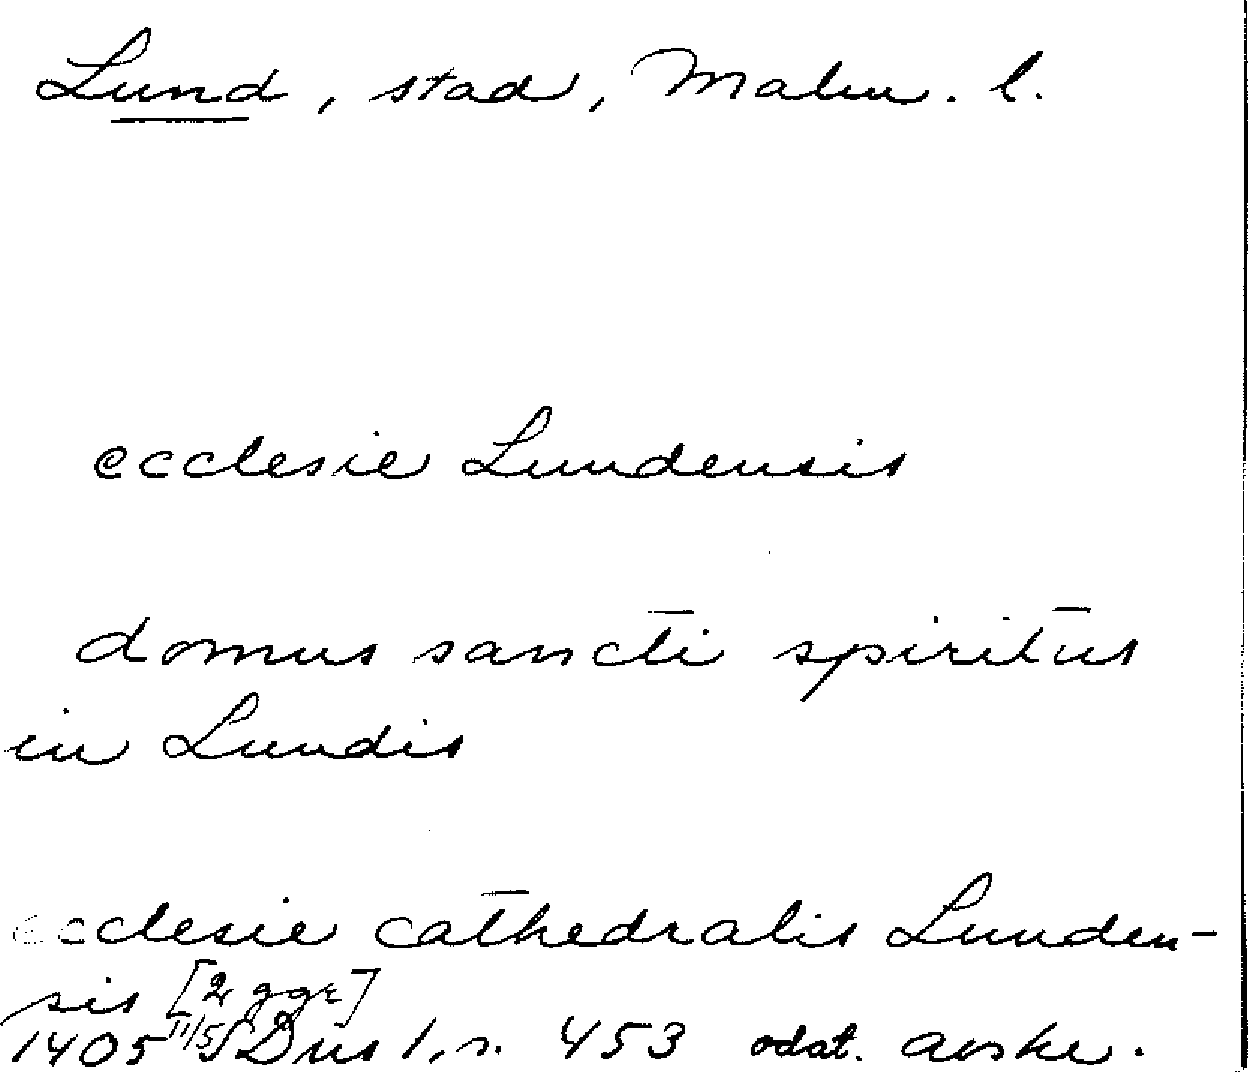 Lund, stad, Malm. l.
ecclesie Lundensis
domus sancti spiritus
in Lundis
ecclesie cathedralis Lunden-
sis [2 ggr]
1405 11/5 SDns 1, s. 453 odat. avskr.